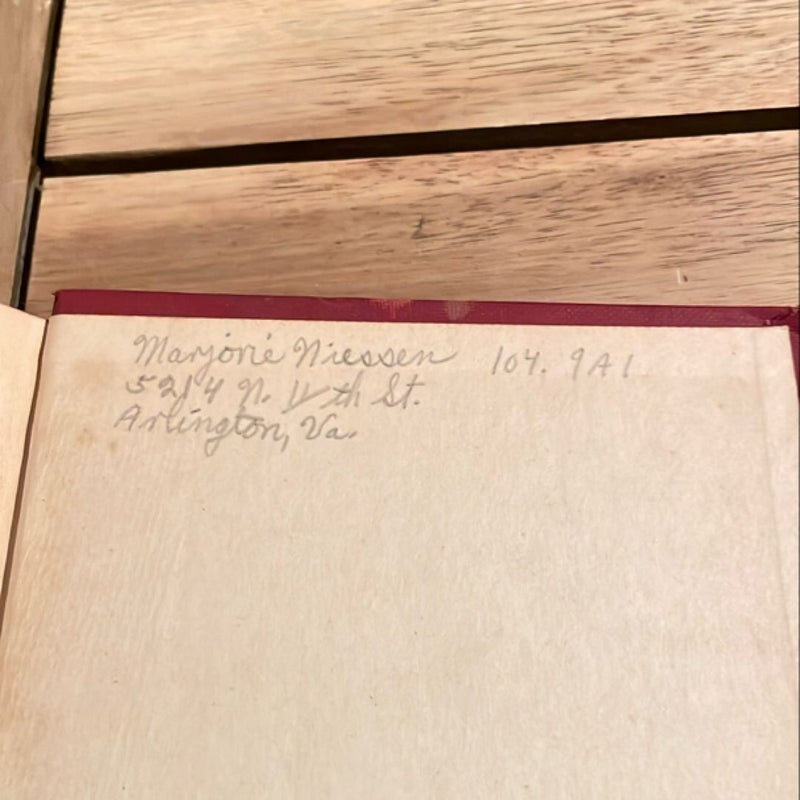 Marjorie Niessen 104. 9A1
5214 N. 11th St.
Arlington, Va.